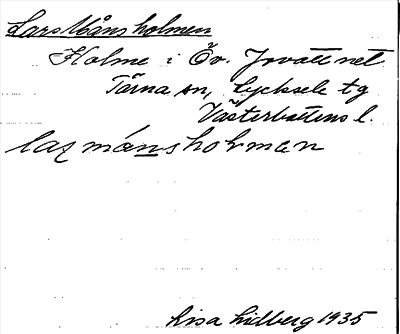 Lars Måns holmen
Holme i Öv. Jovattnet
Tärna sn, Lycksele tg
Västerbottens l.
laʂ månsholman
Lisa Lidberg 1935